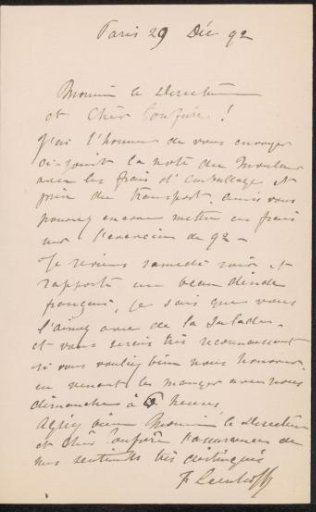 Paris 29 Déc 92
Monsieur le Directeur
et Cher Confrère !
J'ai l'honneur de vous envoyer
ci-joint la note du Mouleur
avec les frais d'emballage et
prix du transport, ainsi vous
pourrez encore mettre ces frais
sur l'exercice de 92 –
Je reviens samedi soir et
rapporte un beau dinde
français, je sais que vous
l'aimez avec de la Salade,
et vous serais très reconnaissant
si vous vouliez bien nous honorer
en venant le manger avec nous
dimanche à 6 heures
Agréez bien Monsieur le Directeur
et cher Confrère l'assurance de
mes sentiments très distingués
F